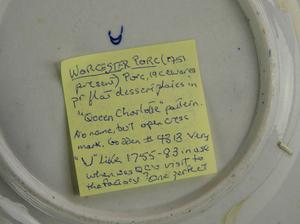 WORCESTER PORC (1751
present) Porc, 19C
pr flat dessert plates in
"Queen Charlotte" pattern.
No name, but open cres
mark, Godden # 4313 Very
"V" like 1755-83 in use
when was QC's visit to
the factory? One perfect